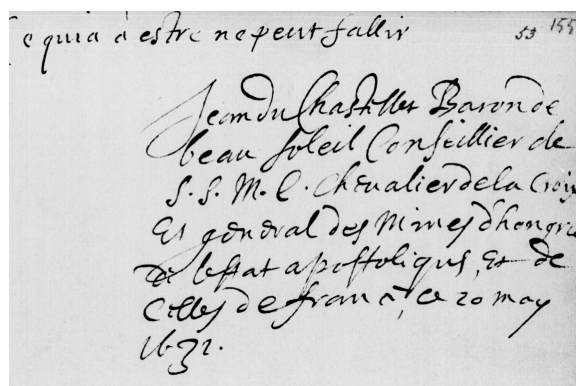 Ce qui a a estre ne peut fallir
53 155
Jean du Chastellet Baron de
beau soleil Conseillier de
S. S. M. C. Chevalier de la Croix
Et general des Mines d'hongrie
de l'estat apostolique, Et de
Celles de france, ce 20 may
1632.